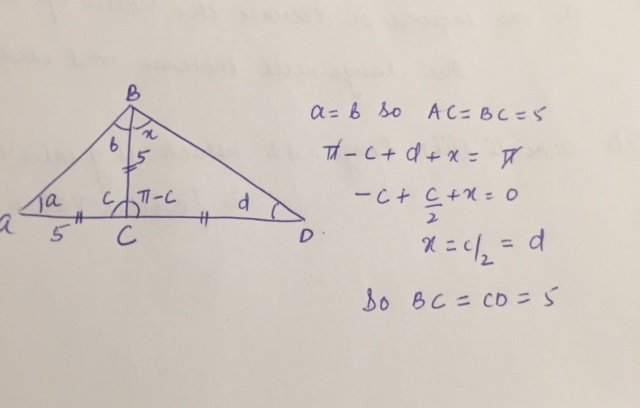 B
a = b So AC = BC = 5
b x
5
π - c + d + x = π
-c + c/2 + x = 0
a c π-c d
A 5 C D
x = c/2 = d
So BC = CD = 5